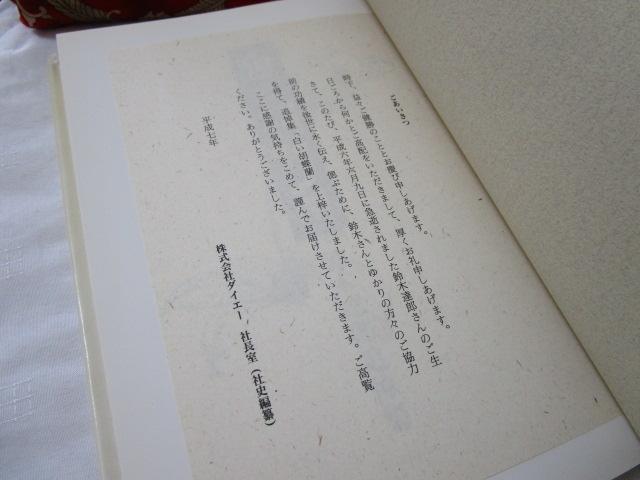 ごあいさつ
時下、益々ご健勝のこととお慶び申しあげます。
日ごろから何かとご高配をいただきまして、厚くお礼申しあげます。
さて、このたび、平成六年六月九日に急逝されました鈴木達郎さんのご生
前の功績を後世に永く伝え、偲ぶために、鈴木さんとゆかりの方々のご協力
を得て、追悼集「白い胡蝶蘭」を上梓いたしました。
ここに感謝の気持ちをこめて、謹んでお届けさせていただきます。ご高覧
ください。ありがとうございました。
平成七年
株式会社ダイエー 社長室（社史編纂）